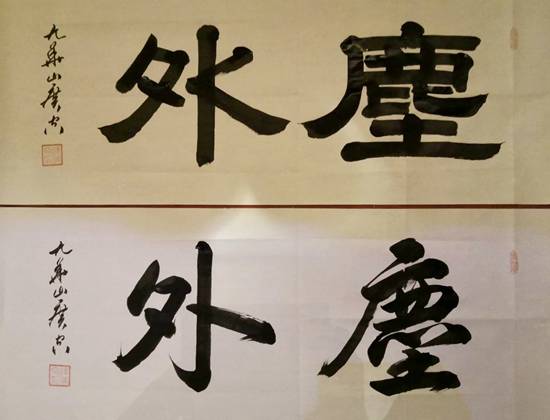 塵外
九華山廣
塵外
九華山廣